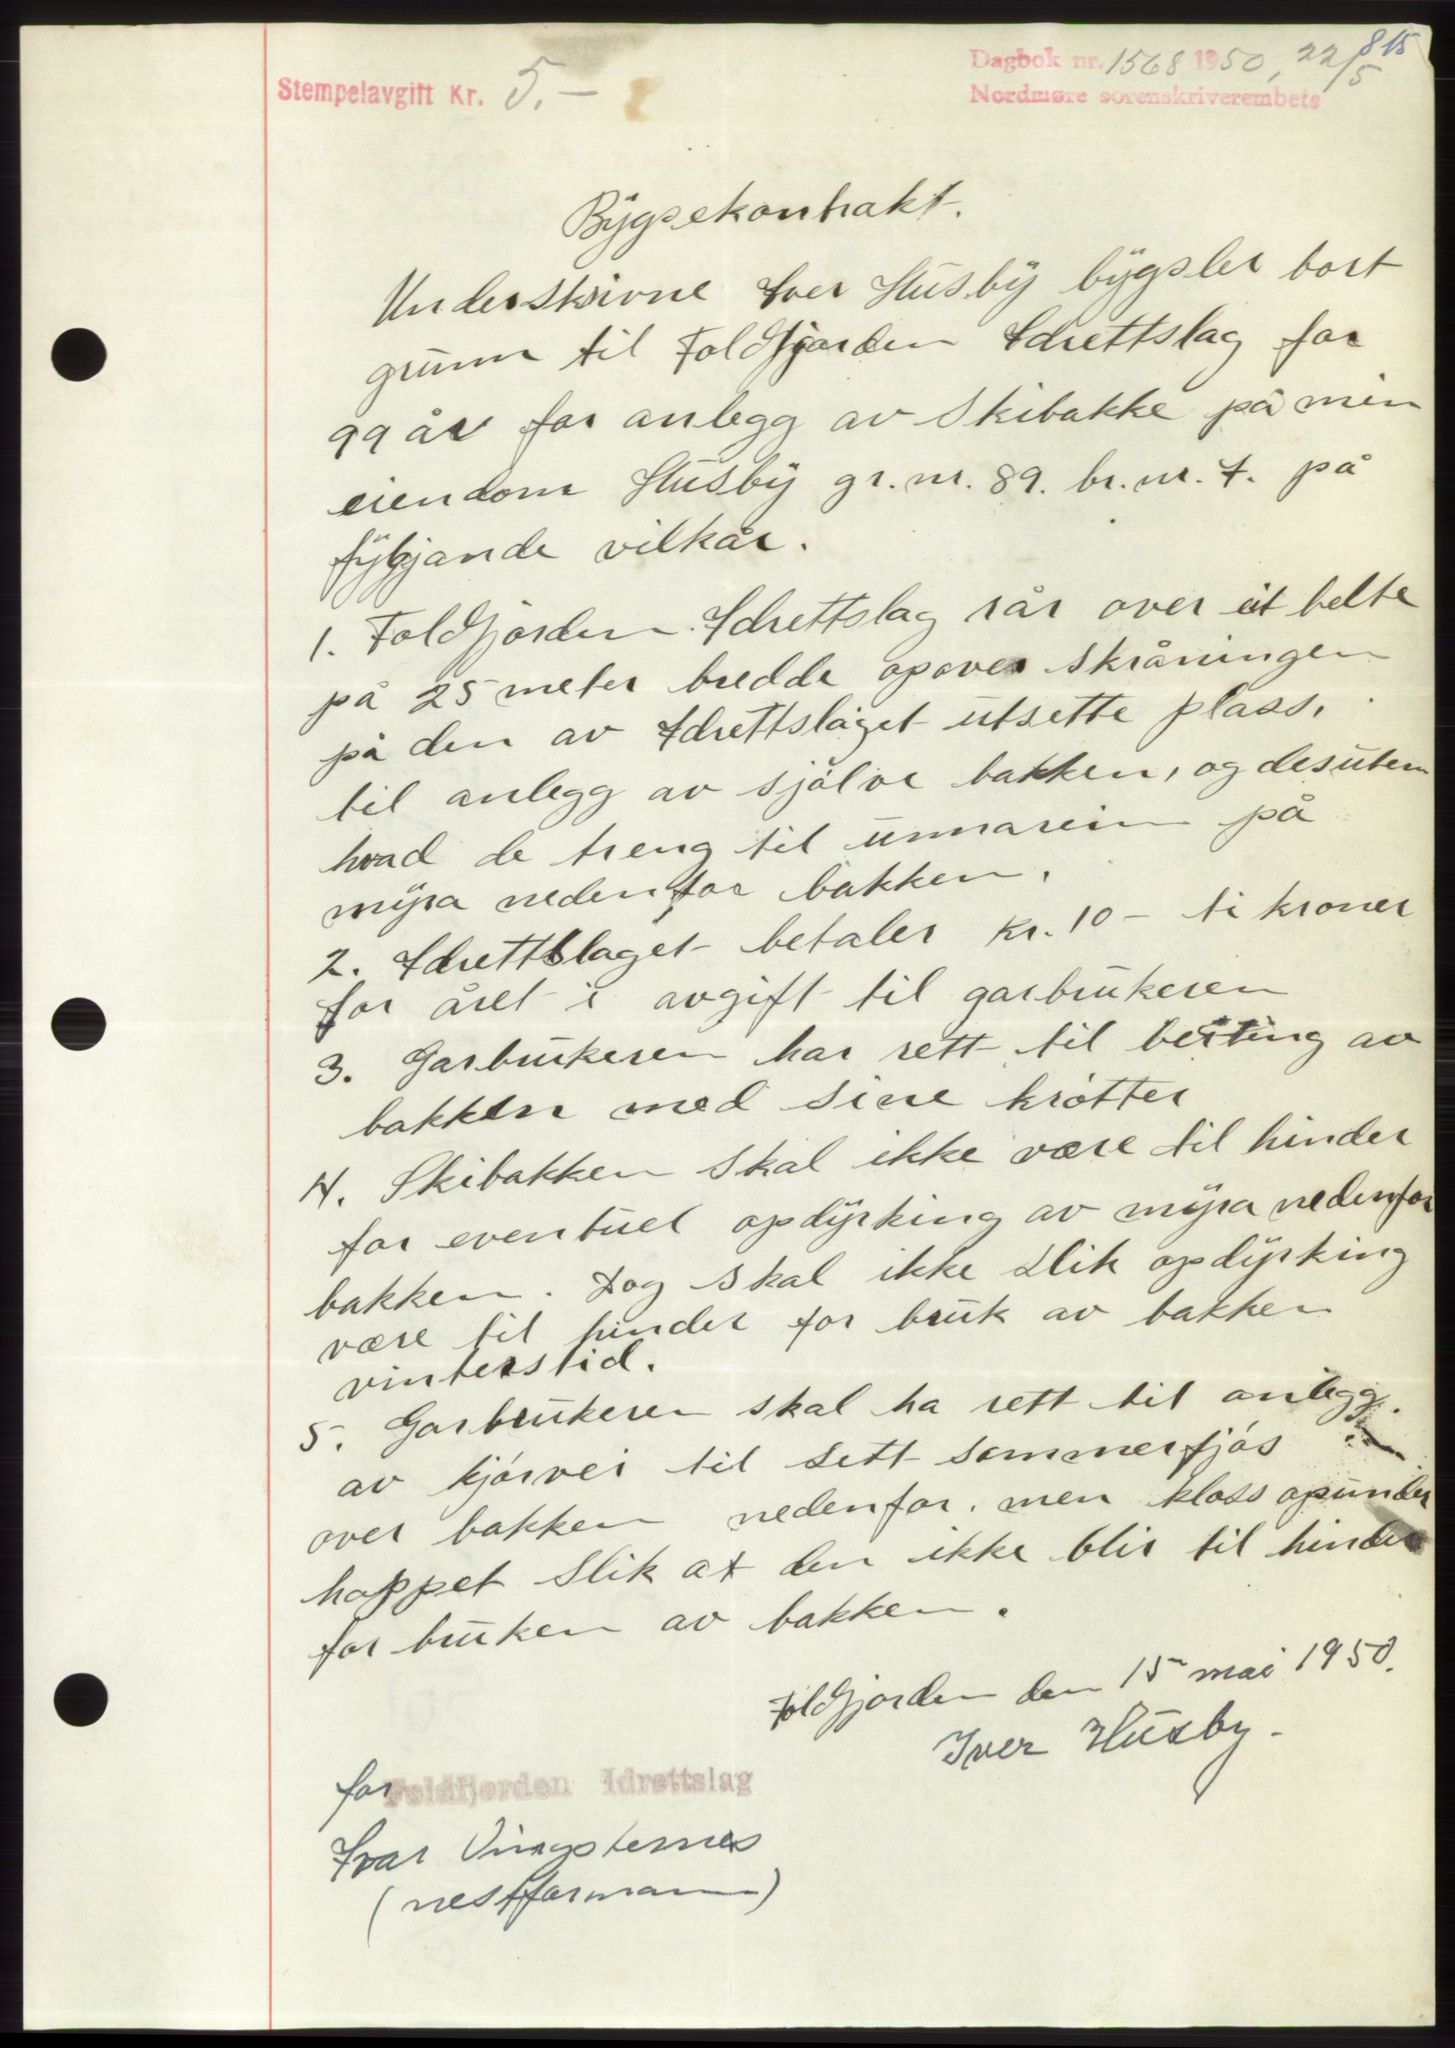 815
Dagbok nr. 1568 1950, 22/5
Stempelavgift Kr. 5.-
Nordmøre sorenskriverembete
Bygsekontrakt.
Underskrivne Iver Husby bygsler bort
grunn til Foldfjorden Idrettslag for
99 år for anlegg av Skibakke på min
eiendom Husby gr. nr. 89. br. nr. 7. på
fylgjande vilkår.
1. Foldfjorden Idrettslag rår over eit belte
på 25 meter bredde opover skråningen
på den av Idrettslaget utsette plass,
til anlegg av sjølve bakken, og desuten
hvad de treng til unnarein på
myra nedenfor bakken.
2. Idrettslaget betaler kr. 10 - ti kroner
for året i avgift til garbrukeren
3. Garbrukeren har rett til beiting av
bakken med sine krøtter
4. Skibakken skal ikke være til hinder
for eventuel opdyrking av myra nedenfor
bakken. Dog skal ikke slik opdyrking
være til hinder for bruk av bakken
vinterstid.
5. Garbrukeren skal ha rett til anlegg.
av kjørvei til sett sommerfjøs
over bakken nedenfor, men kloss opunder
hoppet slik at den ikke blir til hinder
for bruken av bakken.
Foldfjorden den 15 mai 1950.
Iver Husby.
for Foldfjorden Idrettslag
Ivar Vingsternes
(nestformann)